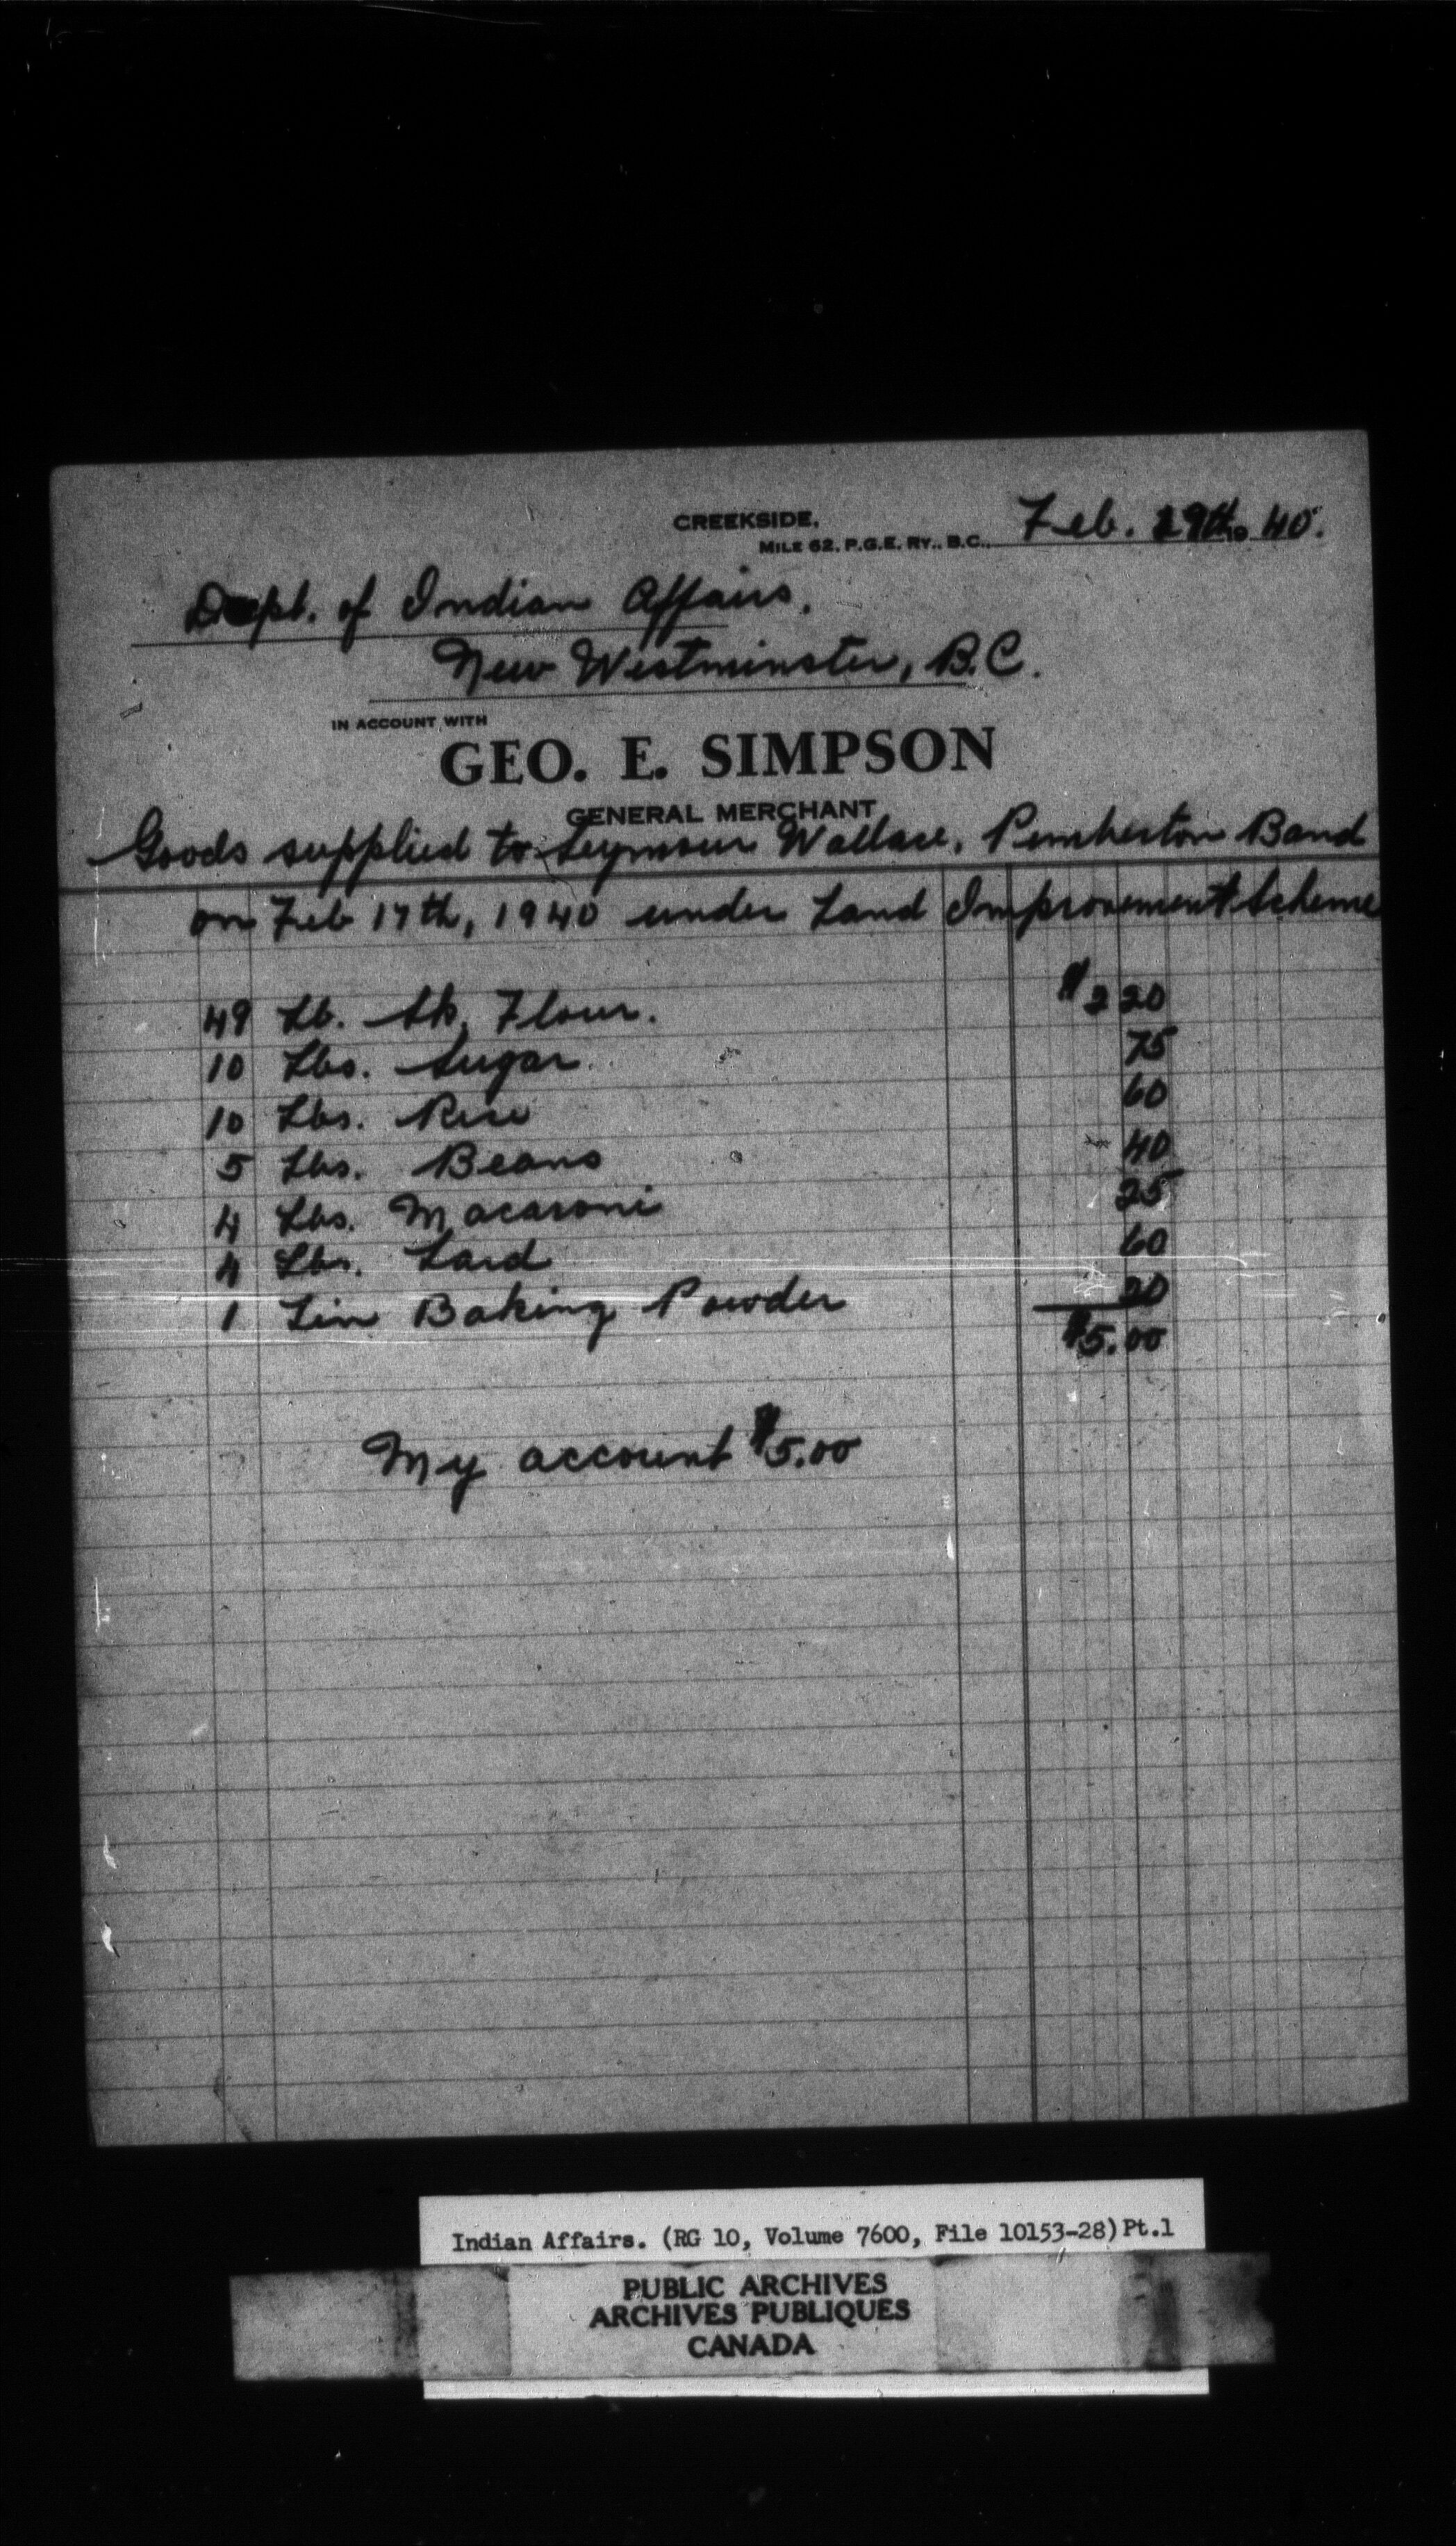 CREEKSIDE,
MILE 62, P.G.E. RY., B.C., Feb. 29th 19 40.
Dept. of Indian Affairs,
New Westminster, B.C.
IN ACCOUNT WITH
GEO. E. SIMPSON
GENERAL MERCHANT
Goods supplied to Seymour Wallace, Pemberton Band
on Feb 17th, 1940 under Land Improvement Scheme
49 Lb. Sk. Flour. $2 20
10 Lbs. Sugar 75
10 Lbs. Rice 60
5 Lbs. Beans 40
4 Lbs. Macaroni 25
4 Lbs. Lard 60
1 Tin Baking Powder 20
$5.00
My account $5.00
Indian Affairs. (RG 10, Volume 7600, File 10153-28) Pt.1
PUBLIC ARCHIVES
ARCHIVES PUBLIQUES
CANADA